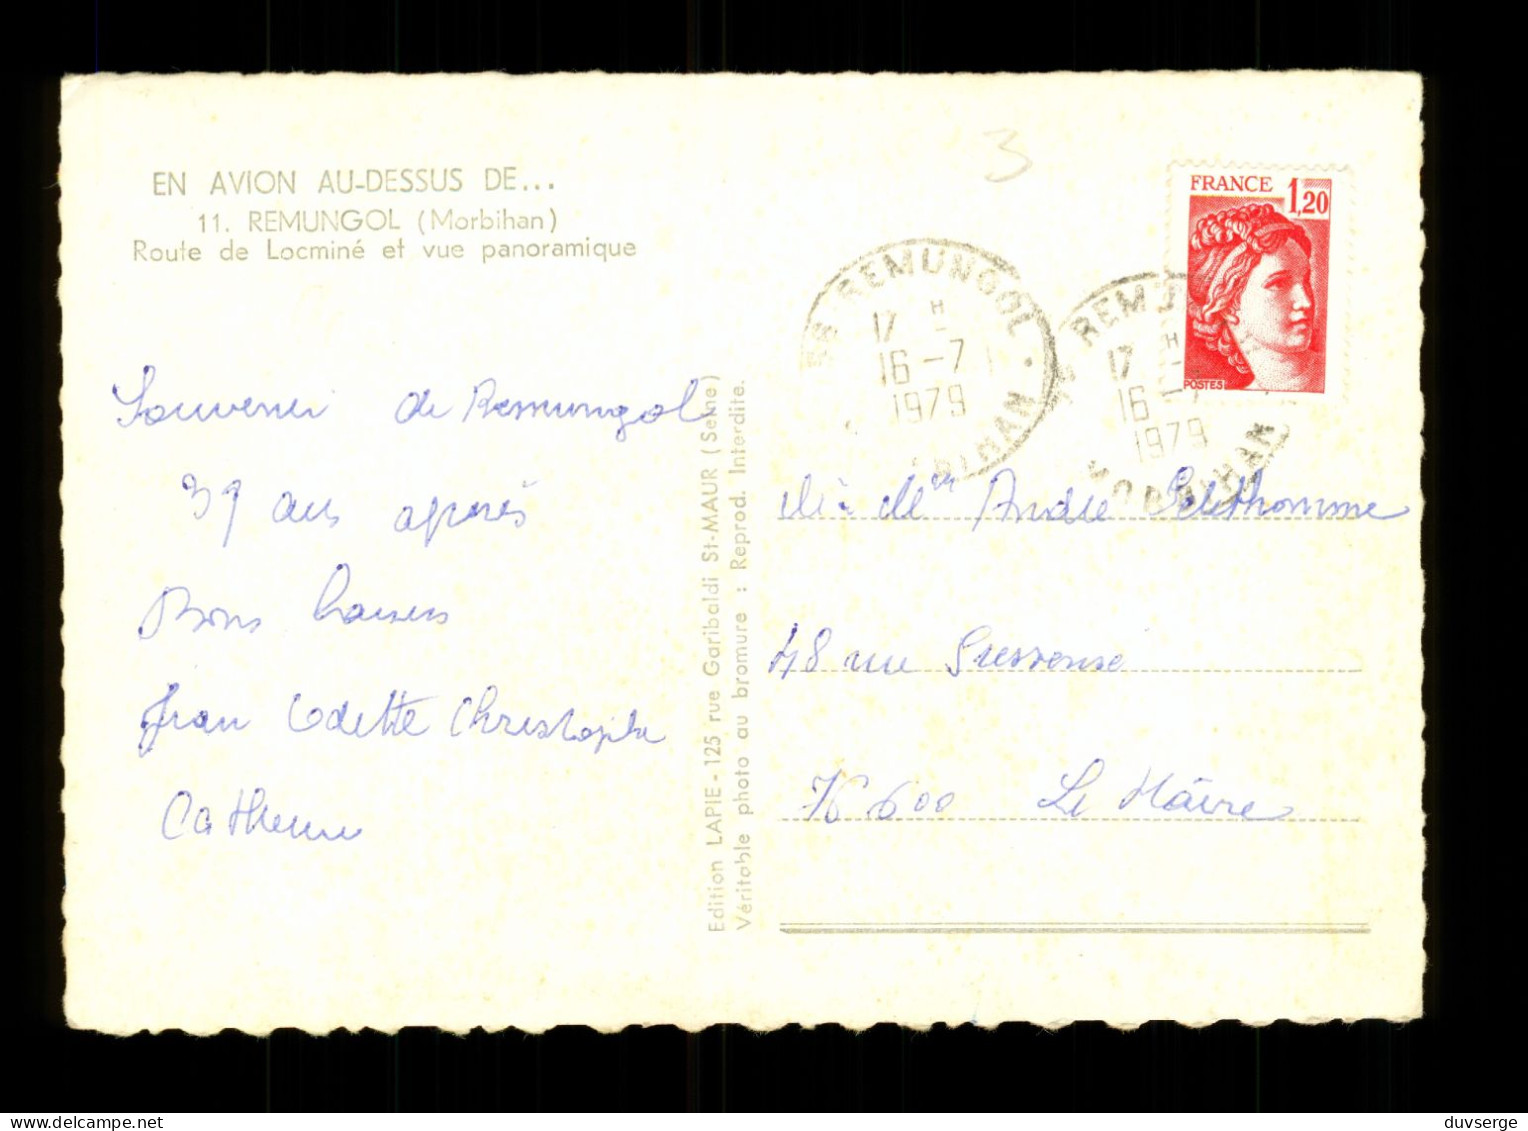 EN AVION AU-DESSUS DE...
11. REMUNGOL (Morbihan)
Route de Locminé et vue panoramique
3
FRANCE 1,20
POSTES
56 REMUNGOL
17 H
16-7
1979
MORBIHAN
REMU
17 H
16-7
1979
MORBIHAN
Souvenir de Remungol
39 ans après
Bons baisers
Jean Odette Christophe
Catherine
Edition LAPIE - 125 rue Garibaldi St-MAUR (Seine)
Véritable photo au bromure : Reprod. Interdite.
Mr Mme André Pelthomme
48 rue Pressensé
76600 Le Hâvre
duvserge delcampe.net